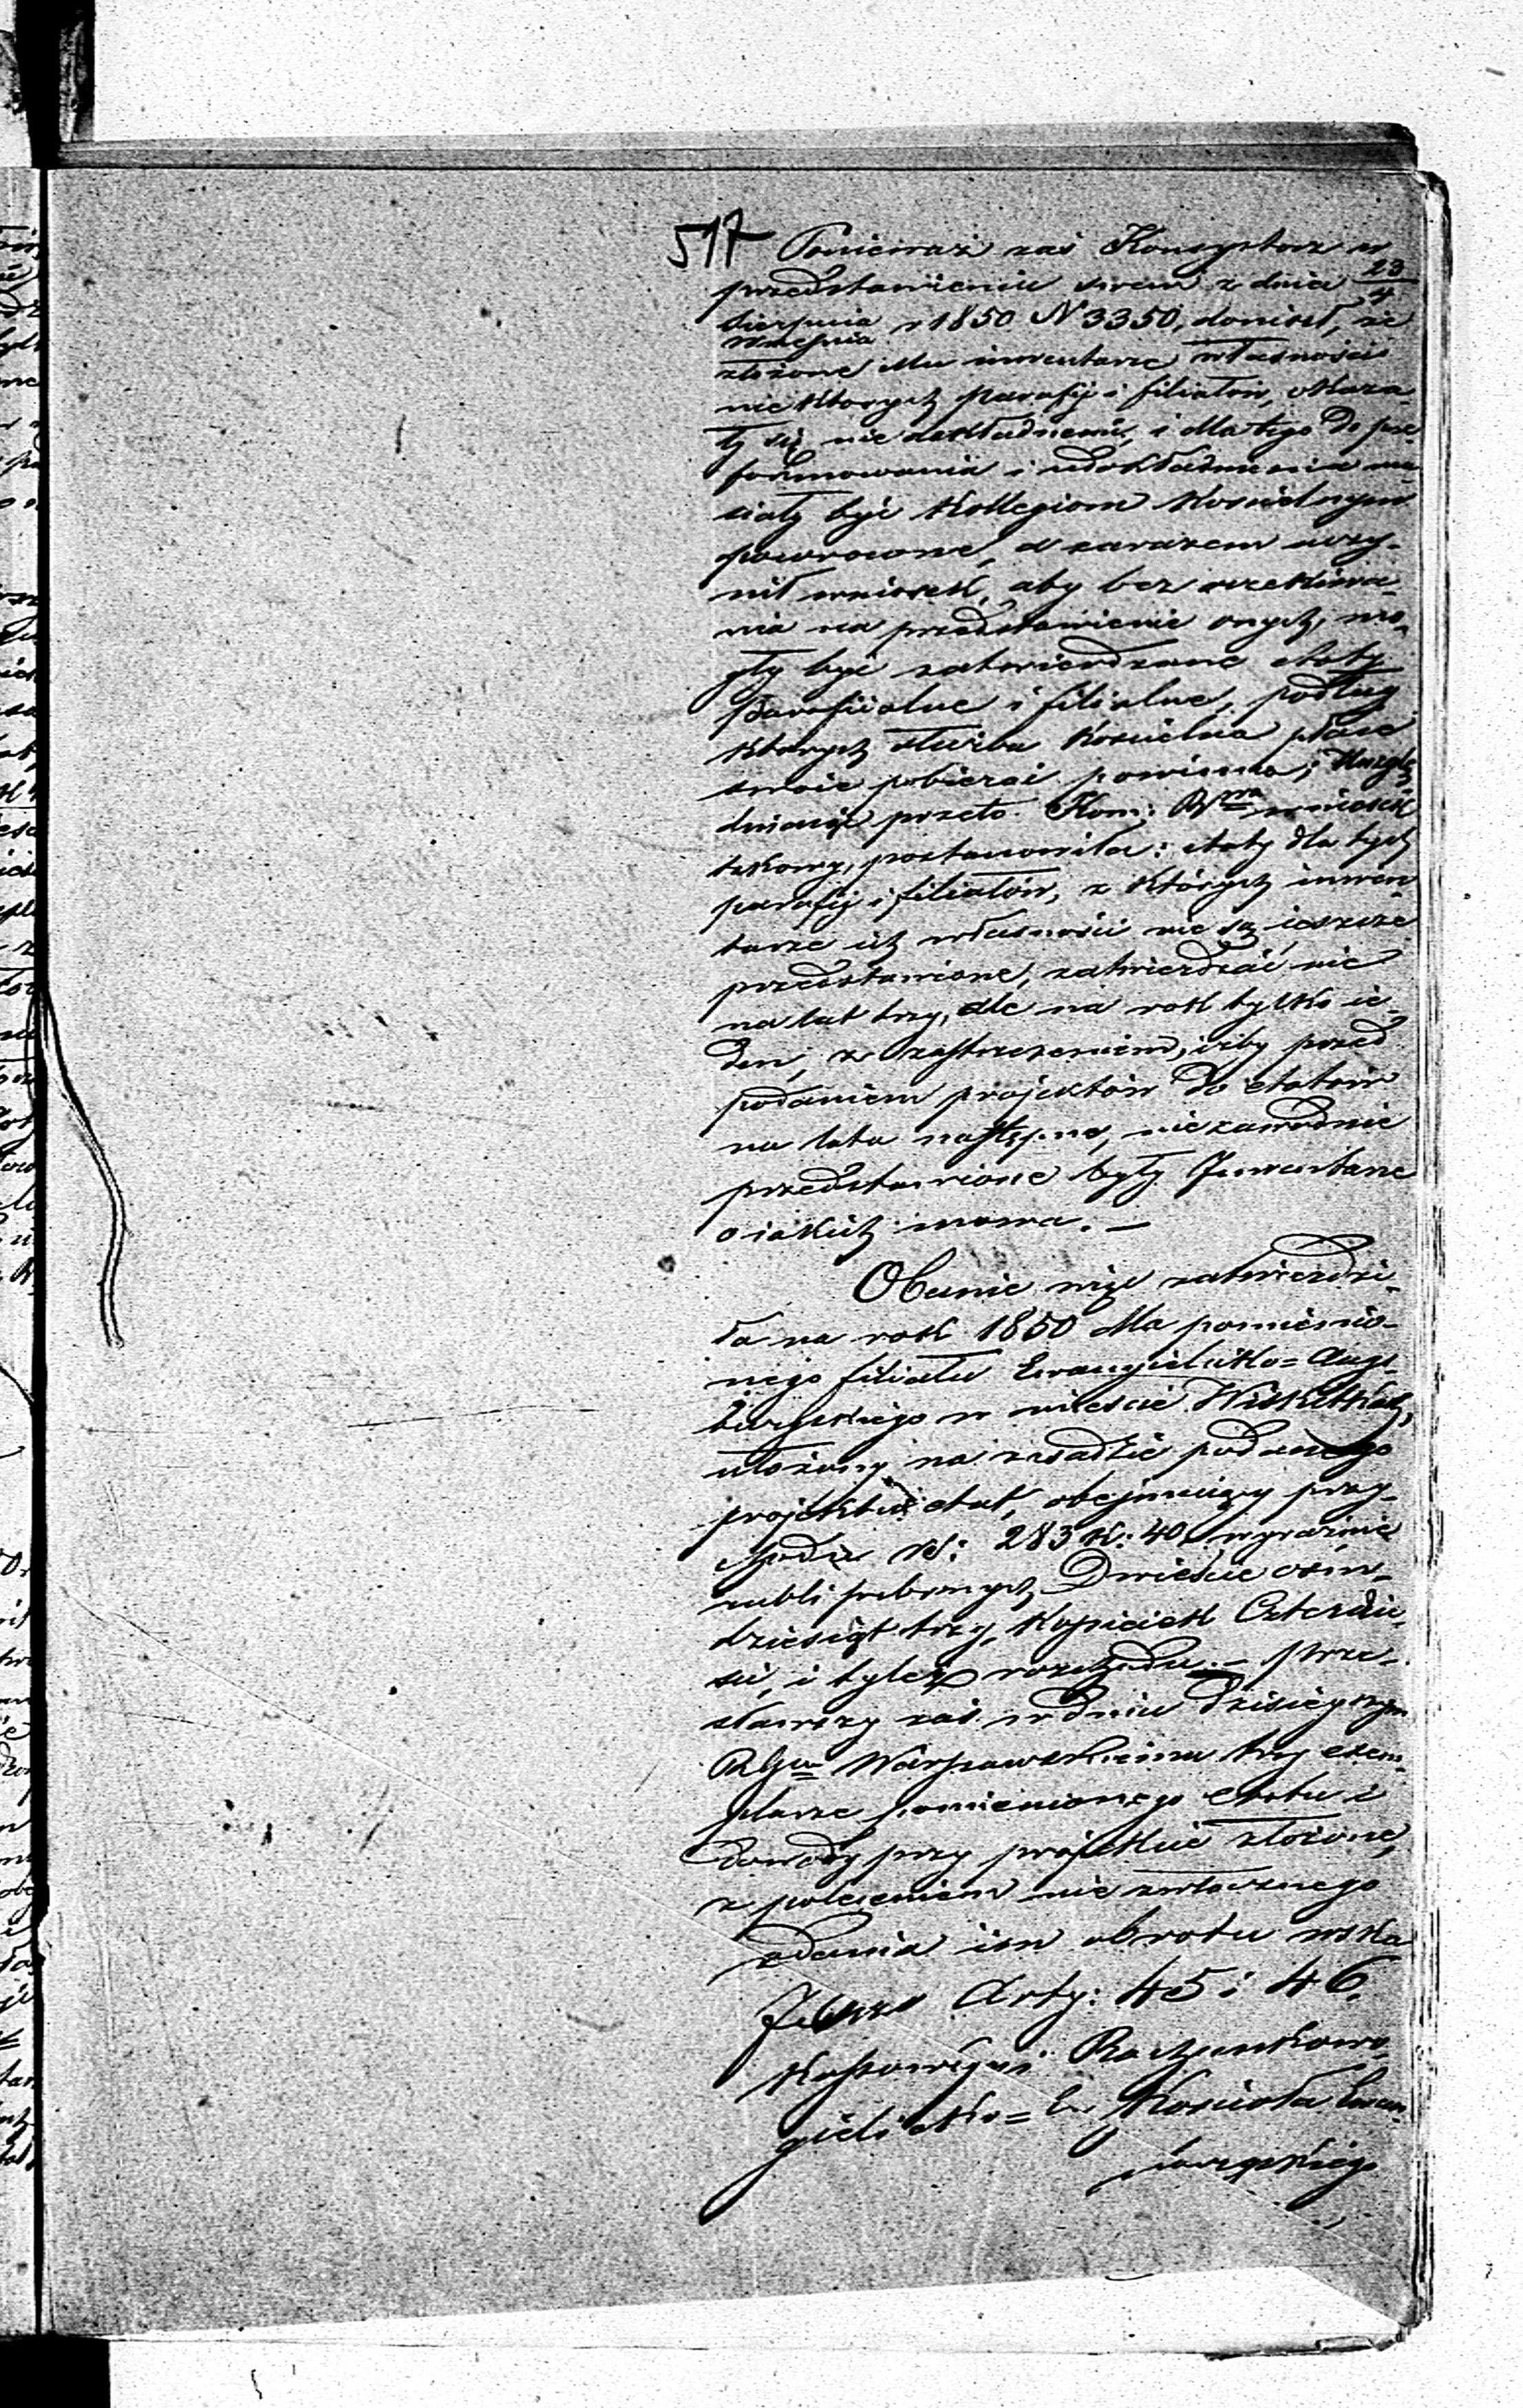 517 Ponieważ zaś Konsystorz w
przedstawieniu swem z dnia 23/4
Sierpnia/Września r 1850 N 3350, doniósł, że
złożone Mu inwentarze własności
niektorych parafij i filiałów, okaza-
ły się niedokładnemi, i dla tego do prze-
formowania i udokładnienia mu-
siały być Kollegiom Kościelnym
powrócone, a zarazem uczy-
nił wniosek, aby bez oczekiwa-
nia na przedstawienie onych, mo-
gły być zatwierdzane etaty
parafijalne i filialne, podług
ktorych służba Kościelna płace
swoie pobierać powinna; Uwzglę-
dniaiąc przeto Kom: Rwa wniosek
takowy, postanowiła: etaty dla tych
parafij i filiałów, z których inwen-
tarze ich własności nie są ieszcze
przedstawione, zatwierdzać nie
na lat trzy, ale na rok tylko ie-
den, z zastrzeżeniem, iżby przed
podaniem projektów do etatów
na lata następne, niezawodnie
przedstawione były Inwentarze
o iakich mowa. —
Obecnie więc zatwierdzi-
ła na rok 1850 dla pomienio-
nego filiału Ewangielicko=Augs-
burskiego w mieście Wiskitkach,
ułożony na zasadzie podanego
projektu etat, obejmuiący przy-
chodu rs: 283 k: 40, wyraźnie
rubli srebrnych Dwieście ośm-
dziesiąt trzy, Kopieiek Czterdzie-
ści, i tyleż rozchodu. – Prze-
sławszy zaś w dniu dzisieyszym
RGwi Warszawskiemu trzy exem-
plarze pomienionego etatu i
dowody przy projekcie złożone,
z poleceniem niezwłocznego
nadania im obrotu wska
Arty: 45 i 46.
Rachunkowo
Kościoła Ewan-
gielicko=
burgskiego